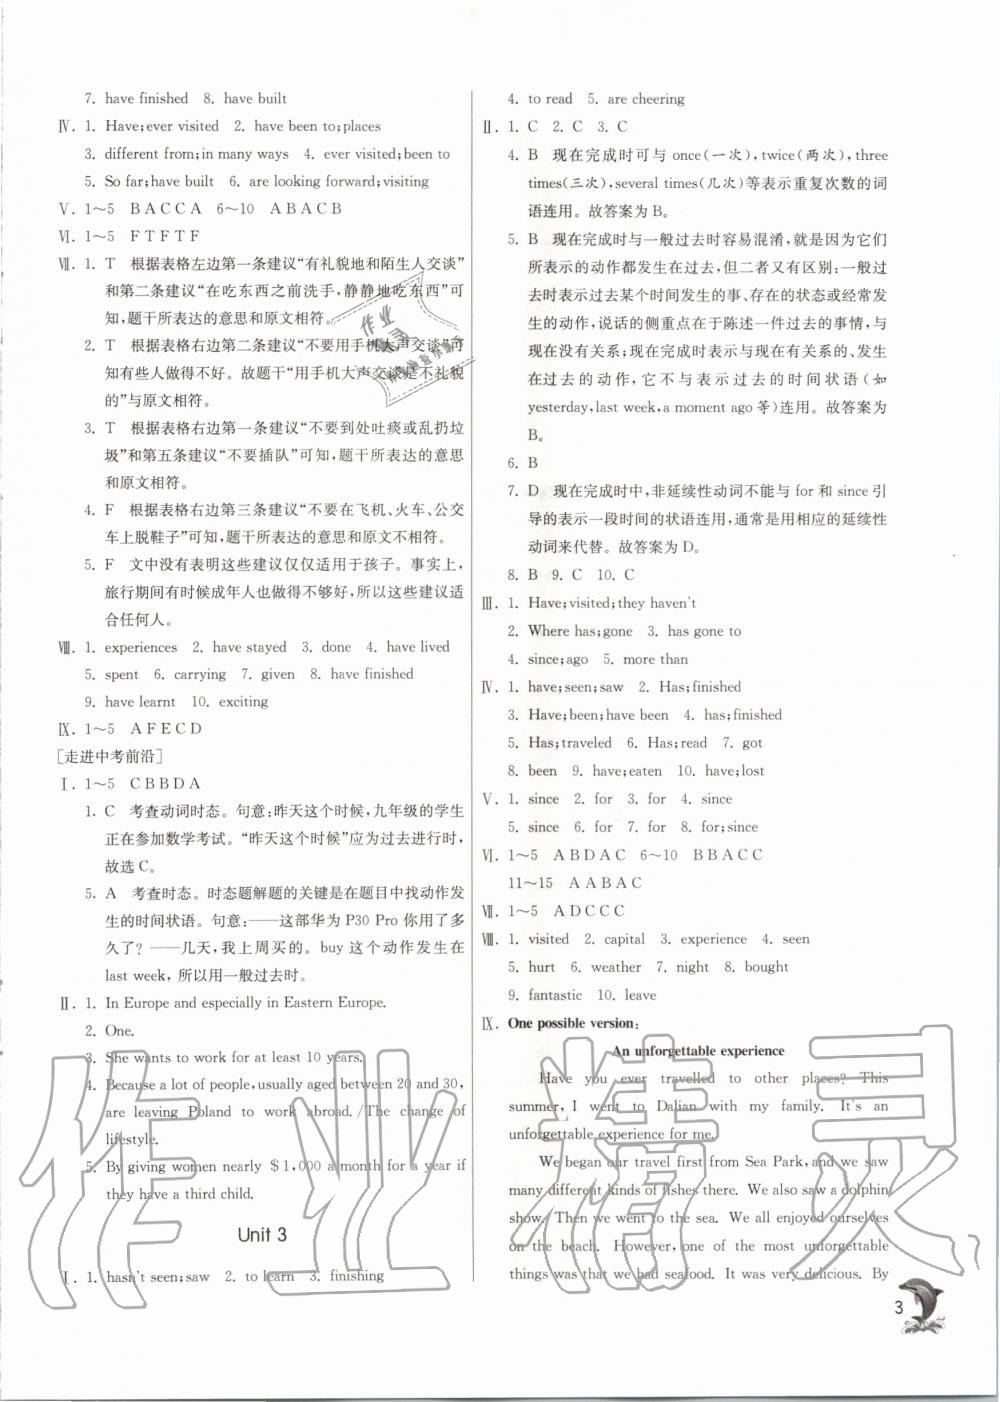 7. have finished 8. have built
Ⅳ. 1. Have;ever visited 2. have been to;places
3. different from;in many ways 4. ever visited;been to
5. So far;have built 6. are looking forward;visiting
Ⅴ. 1～5 B A C C A 6～10 A B A C B
Ⅵ. 1～5 F T F T F
Ⅶ. 1. T 根据表格左边第一条建议“有礼貌地和陌生人交谈”
和第二条建议“在吃东西之前洗手,静静地吃东西”可
知,题干所表达的意思和原文相符。
2. T 根据表格右边第二条建议“不要用手机大声交谈”
可知有些人做得不好。故题干“用手机大声交谈是不礼貌
的”与原文相符。
3. T 根据表格右边第一条建议“不要到处吐痰或乱扔垃
圾”和第五条建议“不要插队”可知,题干所表达的意思
和原文相符。
4. F 根据表格右边第三条建议“不要在飞机、火车、公交
车上脱鞋子”可知,题干所表达的意思和原文不相符。
5. F 文中没有表明这些建议仅仅适用于孩子。事实上,
旅行期间有时候成年人也做得不够好,所以这些建议适
合任何人。
Ⅷ. 1. experiences 2. have stayed 3. done 4. have lived
5. spent 6. carrying 7. given 8. have finished
9. have learnt 10. exciting
Ⅸ. 1～5 A F E C D
[走进中考前沿]
Ⅰ. 1～5 C B B D A
1. C 考查动词时态。句意:昨天这个时候,九年级的学生
正在参加数学考试。“昨天这个时候”应为过去进行时,
故选C。
5. A 考查时态。时态题解题的关键是在题目中找动作发
生的时间状语。句意:——这部华为 P30 Pro 你用了多
久了? ——几天,我上周买的。buy 这个动作发生在
last week, 所以用一般过去时。
Ⅱ. 1. In Europe and especially in Eastern Europe.
2. One.
3. She wants to work for at least 10 years.
4. Because a lot of people, usually aged between 20 and 30,
are leaving Poland to work abroad. /The change of
lifestyle.
5. By giving women nearly $1,000 a month for a year if
they have a third child.
Unit 3
Ⅰ. 1. hasn't seen;saw 2. to learn 3. finishing
4. to read 5. are cheering
Ⅱ. 1. C 2. C 3. C
4. B 现在完成时可与 once(一次), twice(两次), three
times(三次), several times(几次)等表示重复次数的词
语连用。故答案为 B。
5. B 现在完成时与一般过去时容易混淆,就是因为它们
所表示的动作都发生在过去,但二者又有区别:一般过
去时表示过去某个时间发生的事、存在的状态或经常发
生的动作,说话的侧重点在于陈述一件过去的事情,与
现在没有关系;现在完成时表示与现在有关系的、发生
在过去的动作,它不与表示过去的时间状语(如
yesterday, last week, a moment ago 等)连用。故答案为
B。
6. B
7. D 现在完成时中,非延续性动词不能与 for 和 since 引
导的表示一段时间的状语连用,通常是用相应的延续性
动词来代替。故答案为 D。
8. B 9. C 10. C
Ⅲ. 1. Have;visited;they haven't
2. Where has;gone 3. has gone to
4. since;ago 5. more than
Ⅳ. 1. have;seen;saw 2. Has;finished
3. Have;been;have been 4. has;finished
5. Has;traveled 6. Has;read 7. got
8. been 9. have;eaten 10. have;lost
Ⅴ. 1. since 2. for 3. for 4. since
5. since 6. for 7. for 8. for;since
Ⅵ. 1～5 A B D A C 6～10 B B A C C
11～15 A A B A C
Ⅶ. 1～5 A D C C C
Ⅷ. 1. visited 2. capital 3. experience 4. seen
5. hurt 6. weather 7. night 8. bought
9. fantastic 10. leave
Ⅸ. One possible version:
An unforgettable experience
Have you ever travelled to other places? This
summer, I went to Dalian with my family. It's an
unforgettable experience for me.
We began our travel first from Sea Park, and we saw
many different kinds of fishes there. We also saw a dolphin
show. Then we went to the sea. We all enjoyed ourselves
on the beach. However, one of the most unforgettable
things was that we had seafood. It was very delicious. By
3
作业精灵
作业
精灵